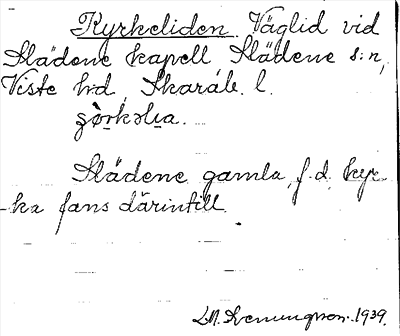 Kyrkeliden. Väglid vid
Slädene kapell Slädene s:n,
Viste hd Skarab. l.
Slädene gamla, f.d. kyr-
ka fans därintill.
1939.